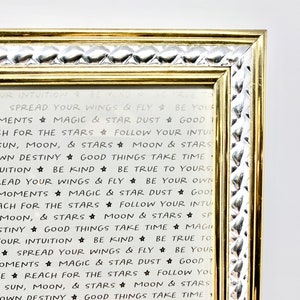 SPREAD YOUR WINGS & FLY ★ BE YOUR
OMENTS ★ MAGIC & STAR DUST ★ GOOD T
ACH FOR THE STARS ★ FOLLOW YOUR INTUI
SUN, MOON, & STARS ★ MOON & STARS
OWN DESTINY ★ GOOD THINGS TAKE TIME ★
★ BE KIND ★ BE TRUE TO YOURSE
READ YOUR WINGS & FLY ★ BE YOUR OWN
MOMENTS ★ MAGIC & STAR DUST ★ GOOD
EACH FOR THE STARS ★ FOLLOW YOUR INT
MOON, & STARS ★ MOON & STARS ★ SP
DESTINY ★ GOOD THINGS TAKE TIME ★ MAGI
UR INTUITION ★ BE KIND ★ BE TRUE
★ SPREAD YOUR WINGS & FLY ★ BE YO
OMENTS ★ MAGIC & STAR DUST ★ GOOD
E ★ REACH FOR THE STARS ★ FOLLOW YO
SUN, MOON, & STARS ★ MOON & STARS